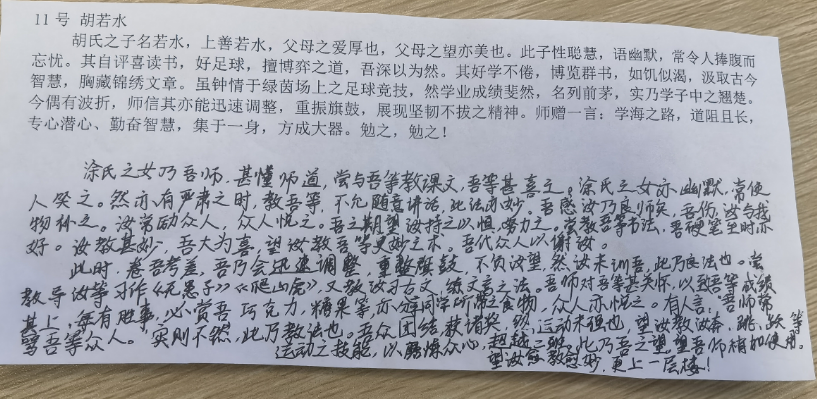 11号 胡若水
胡氏之子名若水，上善若水，父母之爱厚也，父母之望亦美也。此子性聪慧，语幽默，常令人捧腹而
忘忧。其自评喜读书，好足球，擅博弈之道，吾深以为然。其好学不倦，博览群书，如饥似渴，汲取古今
智慧，胸藏锦绣文章。虽钟情于绿茵场上之足球竞技，然学业成绩斐然，名列前茅，实乃学子中之翘楚。
今偶有波折，师信其亦能迅速调整，重振旗鼓，展现坚韧不拔之精神。师赠一言：学海之路，道阻且长，
专心潜心、勤奋智慧，集于一身，方成大器。勉之，勉之！
涂氏之女乃吾师，甚懂师道，尝与吾等教课文，吾等甚喜之。涂氏之女亦幽默，常使
人笑之。然亦有严肃之时，教吾等，不允随意讲话，此法亦妙。吾感汝乃良师矣，吾伤，汝与我
物补之。汝常励众人，众人悦之。吾之期望汝持之以恒，努力之。尝教吾等书法，吾硬笔至时亦
好。汝教甚妙，吾大为喜，望汝教吾等更妙之术。吾代众人以谢汝。
此时，卷吾考差，吾乃会迅速调整，重整旗鼓，不负汝望，然汝未训吾，此乃良法也。尝
教导汝等习作《无愚子》《爬山虎》，又教汝习古文，练文言之法。吾师对吾等甚关怀，以致吾等成绩
甚上，每有胜事，必赏吾巧克力，糖果等，亦解同学所带之食物，众人亦悦之。有人言：吾师带
吾等众人。实则不然，此乃教法也。吾众团结获诸奖，然运动未强也，望汝教汝奔、跳、跃等
运动之技能，以磨炼众心，超越二班，此乃吾之望，望吾师精加使用。
望汝愈教愈妙，更上一层楼！